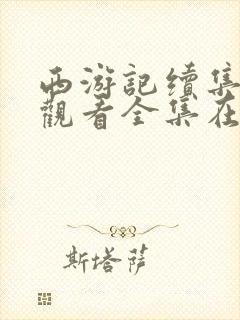 西游記续集
觀看全集在
斯塔萨